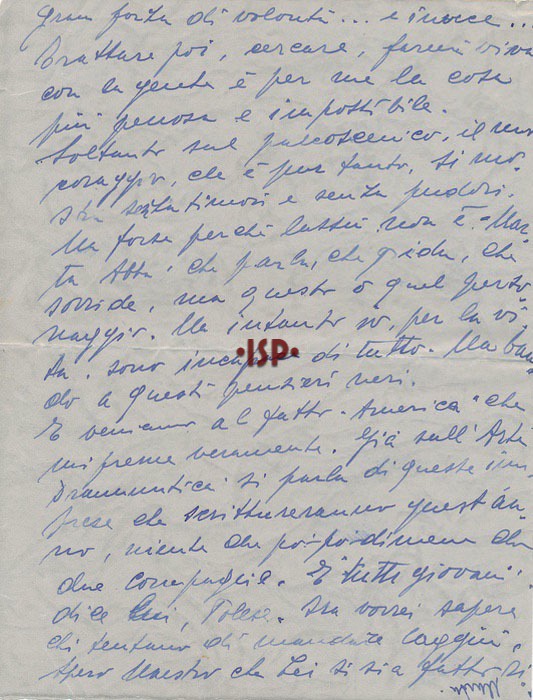 gran forza di volontà... e invece...
Trattare poi, cercare, farmi viva
con la gente è per me la cosa
più penosa e impossibile.
Soltanto sul palcoscenico, il mio
coraggio, che è pur tanto, si mo-
stra senza timori e senza pudori.
Ma forse perché lassù non è "Mar-
ta Abba" che parla, che grida, che
sorride, ma questo o quel perso-
naggio. Ma intanto io, per la vi-
ta, sono incapace di tutto. Ma ban-
do a questi pensieri neri.
E veniamo al fatto "America" che
mi preme veramente. Già sull'"Arte
Drammatica" si parla di queste im-
prese che scrittureranno quest'an-
no, niente che poi-poi di meno che
due compagnie. E "tutti giovani"
dice
vorrei sapere
chi tentano di mandare laggiù.
Spero Maestro che Lei si sia fatto
·ISP·